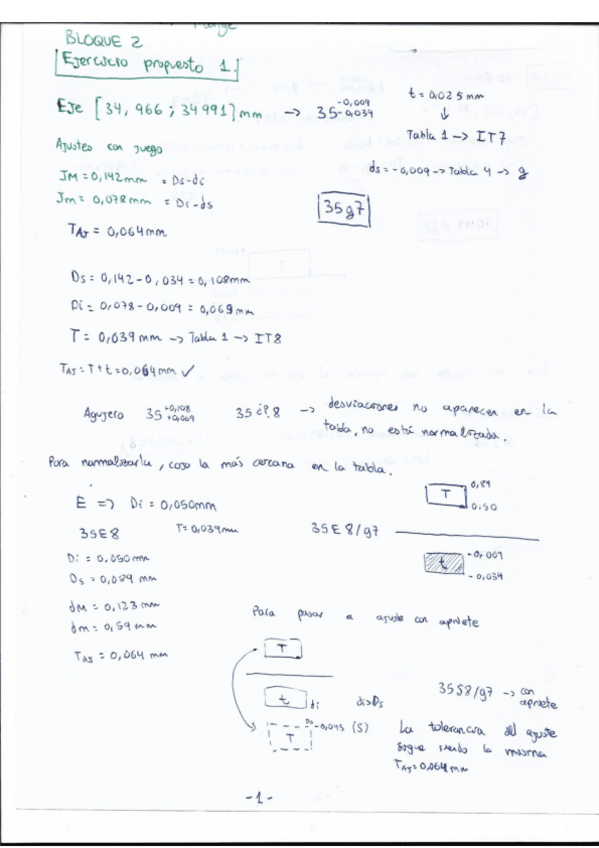 BLOQUE 2
Ejercicio propuesto 1.
Eje [34,966 ; 34 991] mm → 35 -0,009 -0,034
t = 0,025 mm
↓
Tabla 1 → IT7
ds = -0,009 → Tabla 4 → g
Ajustes con juego
JM = 0,142 mm = Ds - di
Jm = 0,078 mm = Di - ds
35g7
TAJ = 0,064 mm
Ds = 0,142 - 0,034 = 0,108 mm
Di = 0,078 - 0,009 = 0,069 mm
T = 0,039 mm → Tabla 1 → IT8
TAJ = T + t = 0,064 mm ✓
Agujero 35 +0,108 +0,069 35 ¿?.8 → desviaciones no aparecen en la
tabla, no está normalizada.
Para normalizarla, cojo la más cercana en la tabla.
E => Di = 0,050 mm
35E8 T = 0,039 mm 35E8/g7
T 0,89
0.50
t -0,009
-0,034
Di = 0,050 mm
Ds = 0,089 mm
JM = 0,123 mm
Jm = 0,59 mm
TAJ = 0,064 mm
Para pasar a ajuste con apriete
T
t di di>Ds
T Ds -0,043 (S)
35S8/g7 → con
apriete
La tolerancia del ajuste
sigue siendo la misma
TAJ = 0,064 mm
-1-